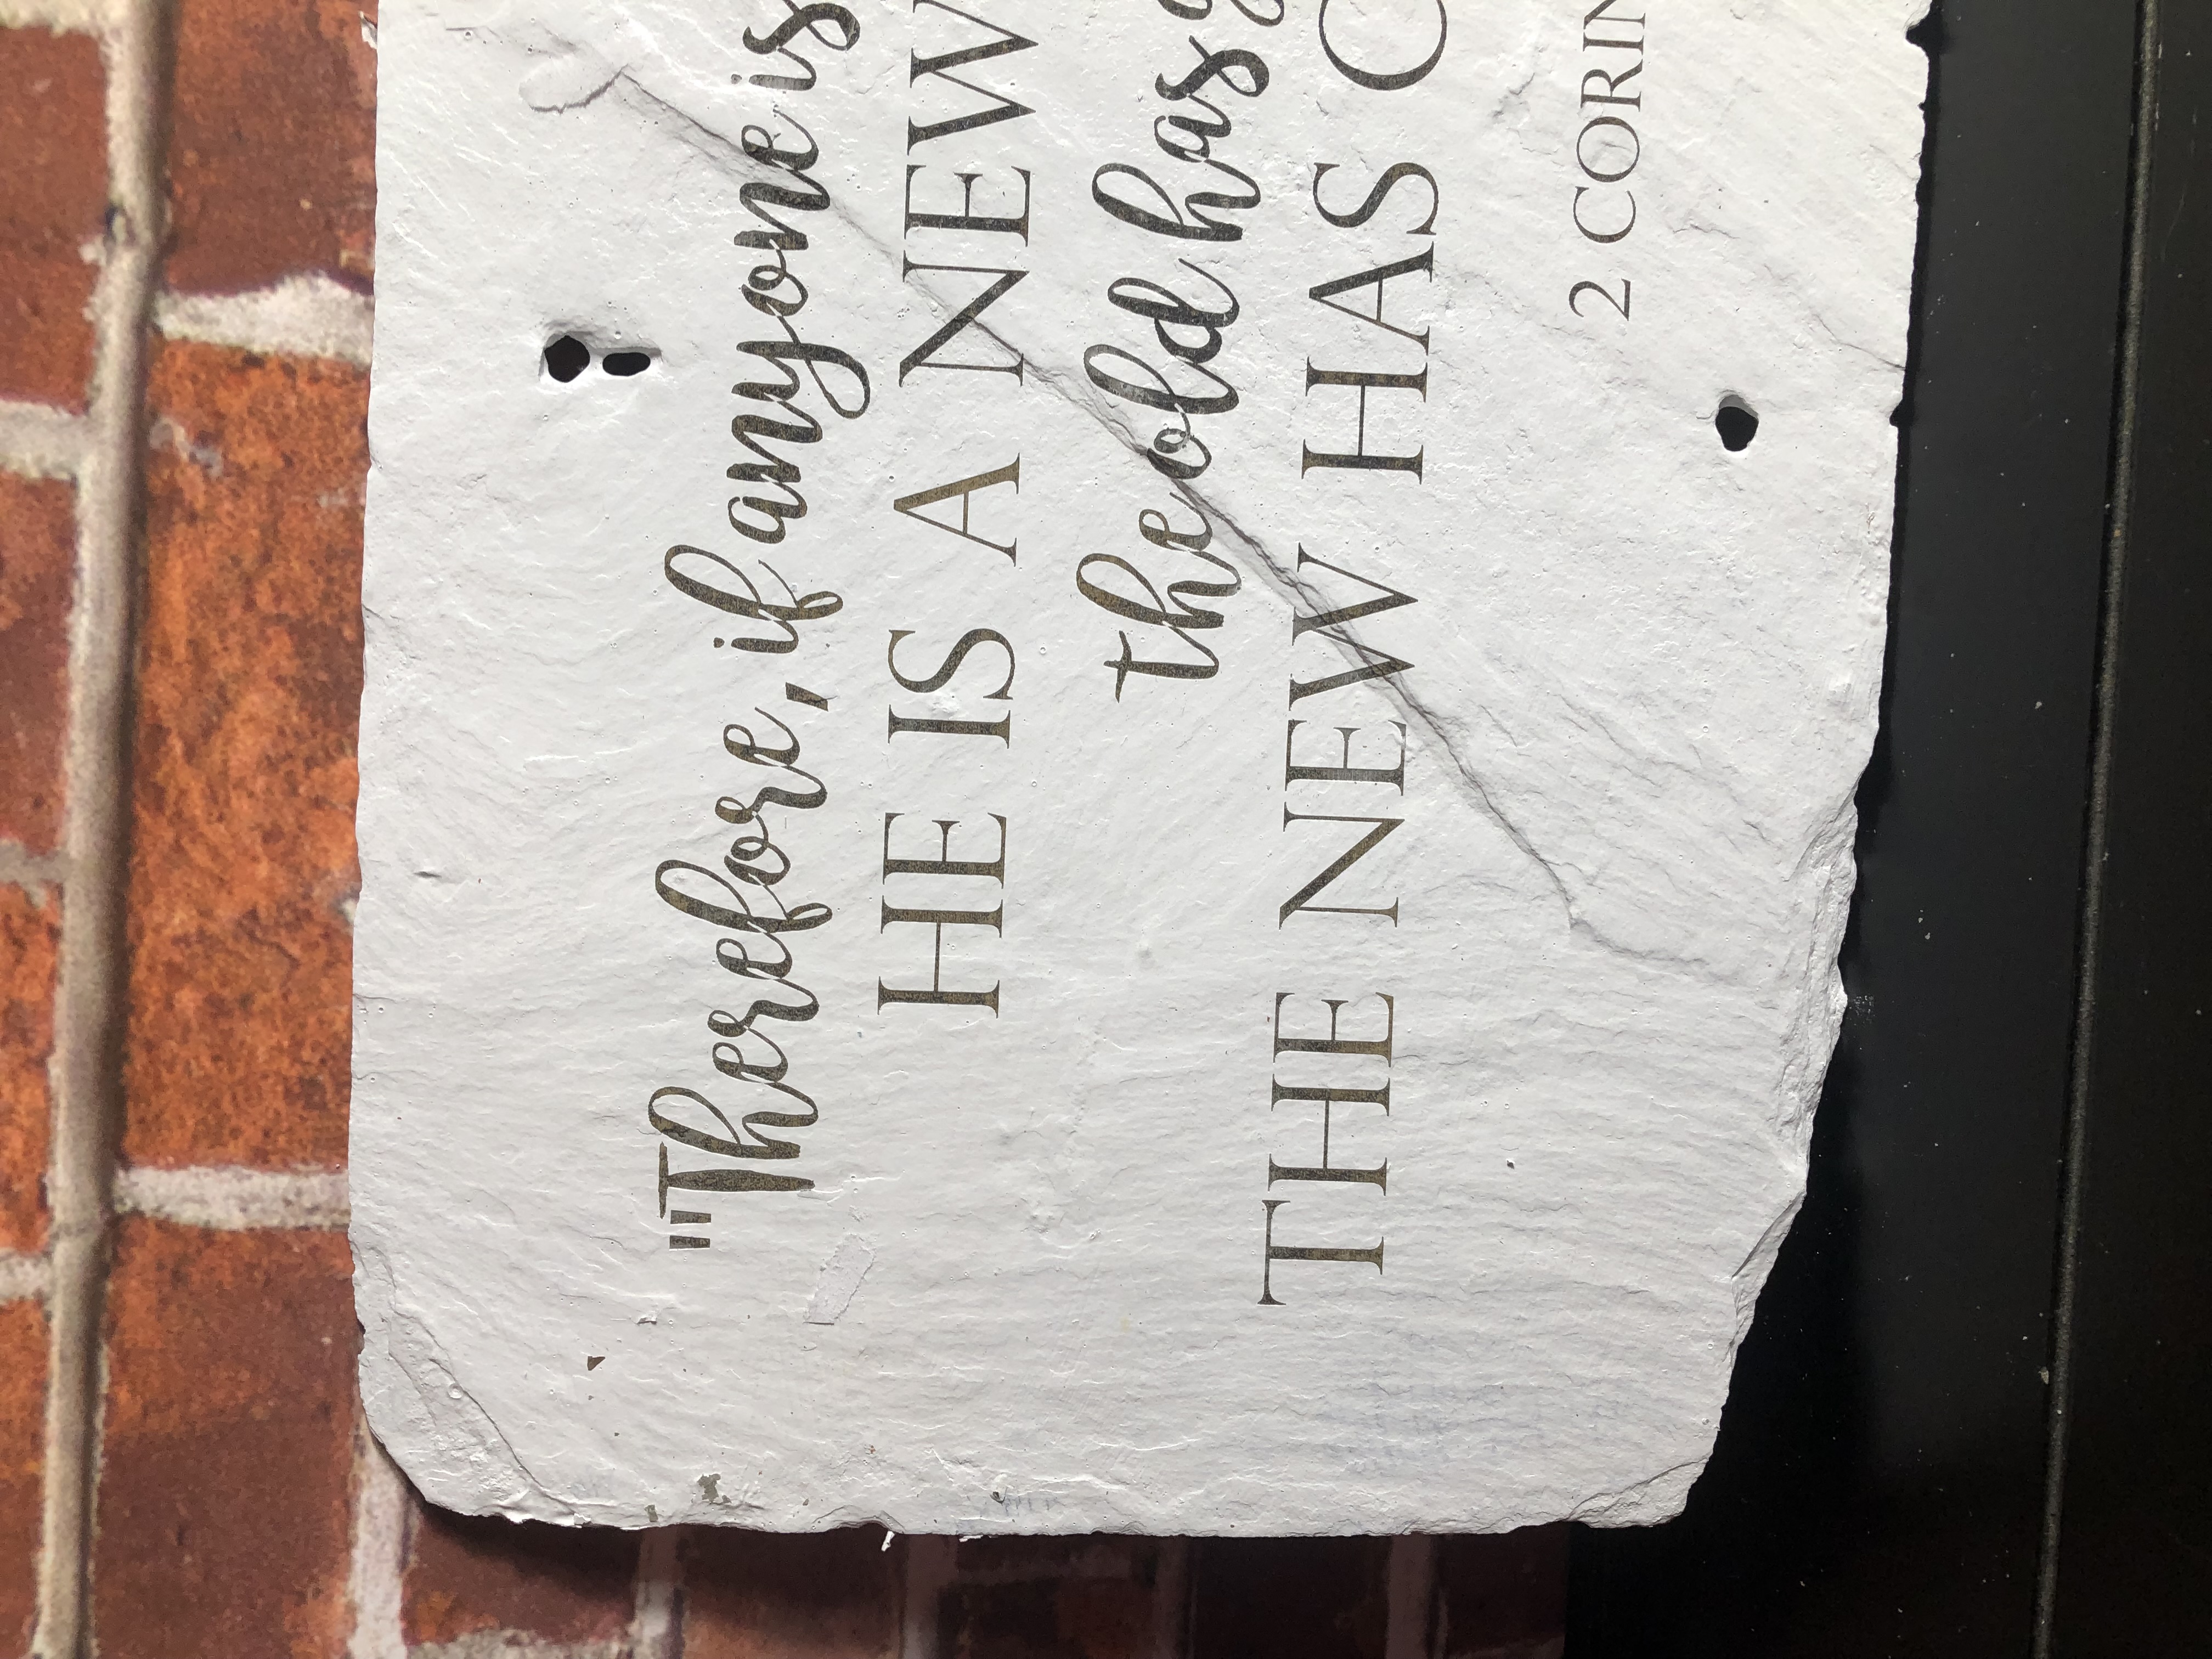 "Therefore, if anyone is
HE IS A NEW
the old has
THE NEW HAS C
2 CORIN